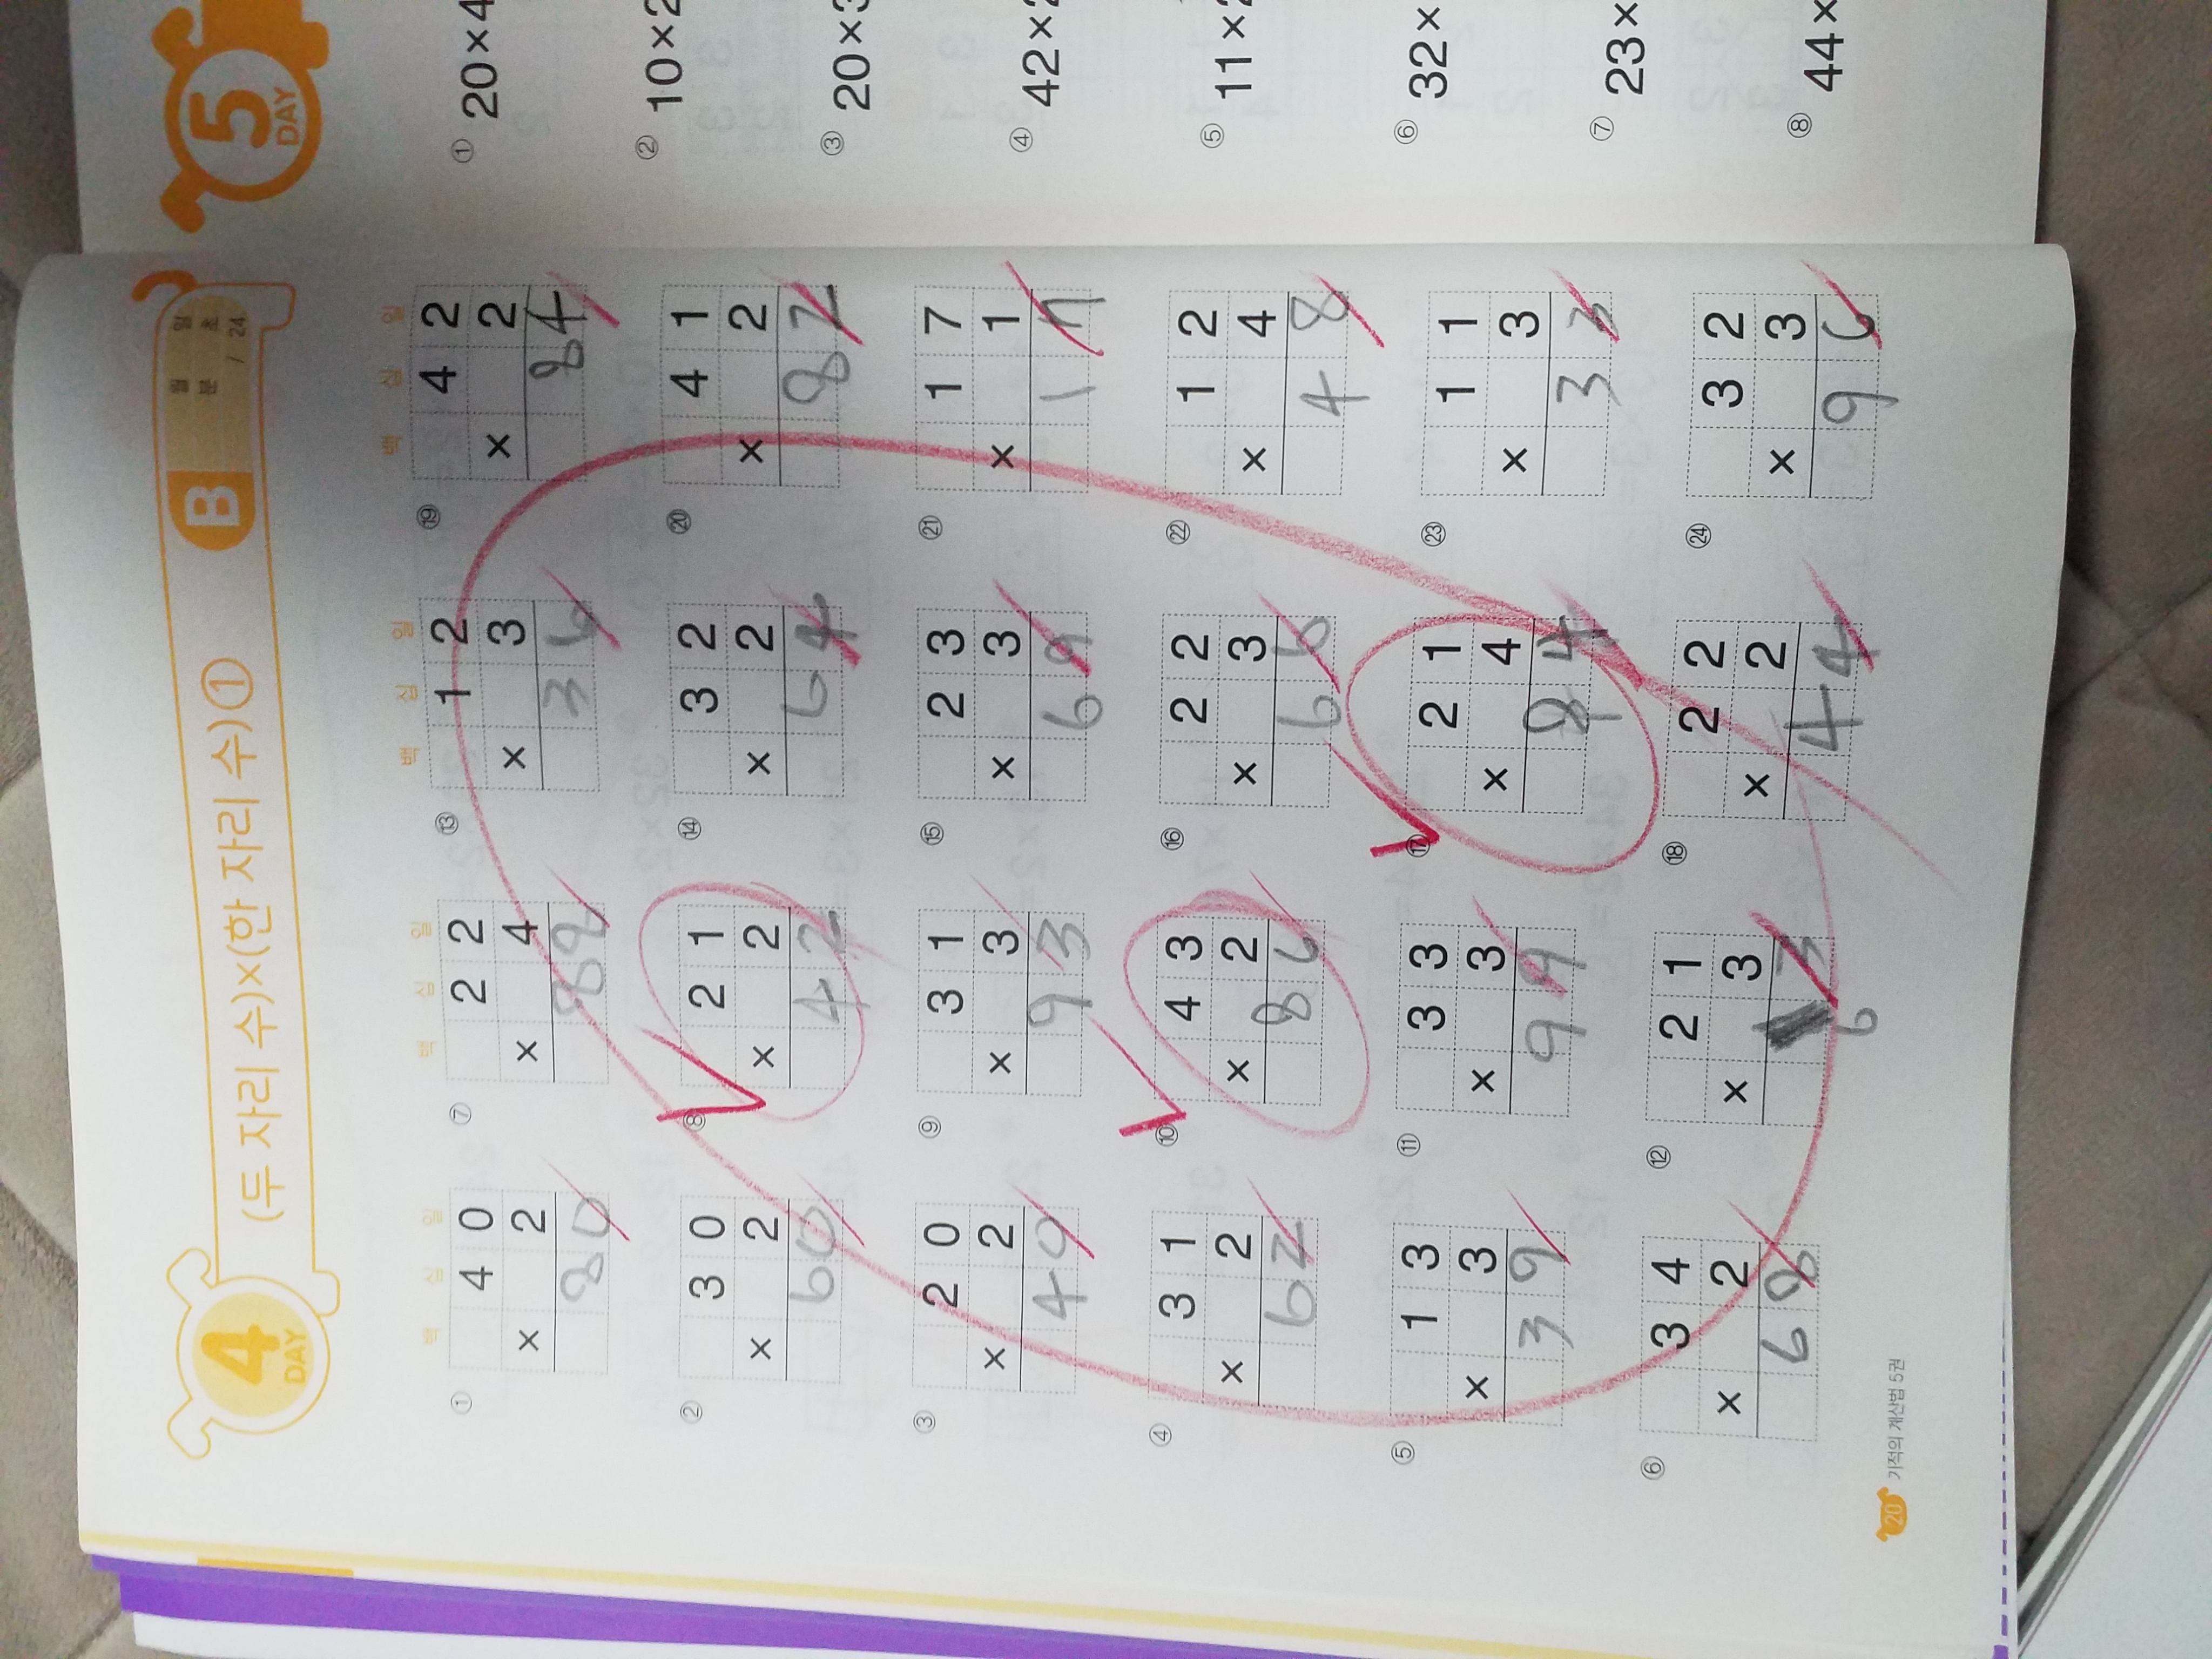 4 DAY
(두 자리 수)×(한 자리 수)①
B
월 일
분 초
/ 24
백 십 일
백 십 일
백 십 일
백 십 일
① 4 0
× 2
8 0
② 3 0
× 2
6 0
③ 2 0
× 2
4 0
④ 3 1
× 2
6 2
⑤ 1 3
× 3
3 9
⑥ 3 4
× 2
6 8
⑦ 2 2
× 4
8 8
⑧ 2 1
× 2
4 2
⑨ 3 1
× 3
9 3
⑩ 4 3
× 2
8 6
⑪ 3 3
× 3
9 9
⑫ 2 1
× 3
3
6
⑬ 1 2
× 3
3 6
⑭ 3 2
× 2
6 4
⑮ 2 3
× 3
6 9
⑯ 2 2
× 3
6 6
⑰ 2 1
× 4
8 4
⑱ 2 2
× 2
4 4
⑲ 4 2
× 2
8 4
⑳ 4 1
× 2
8 2
㉑ 1 7
× 1
1 7
㉒ 1 2
× 4
4 8
㉓ 1 1
× 3
3 3
㉔ 3 2
× 3
9 6
20 기적의 계산법 5권
5 DAY
① 20×4
② 10×2
③ 20×3
④ 42×
⑤ 11×
⑥ 32×
⑦ 23×
⑧ 44×